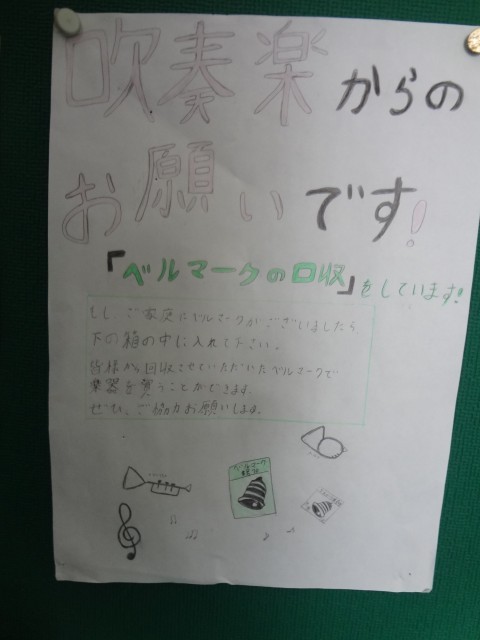 吹奏楽からの
お願いです!
「ベルマークの回収」をしています!
もし ご家庭にベルマークがございましたら
下の箱の中に入れて下さい。
皆様から回収させていただいたベルマークで
楽器を買うことができます。
ぜひ、ご協力お願いします。
ベルマーク